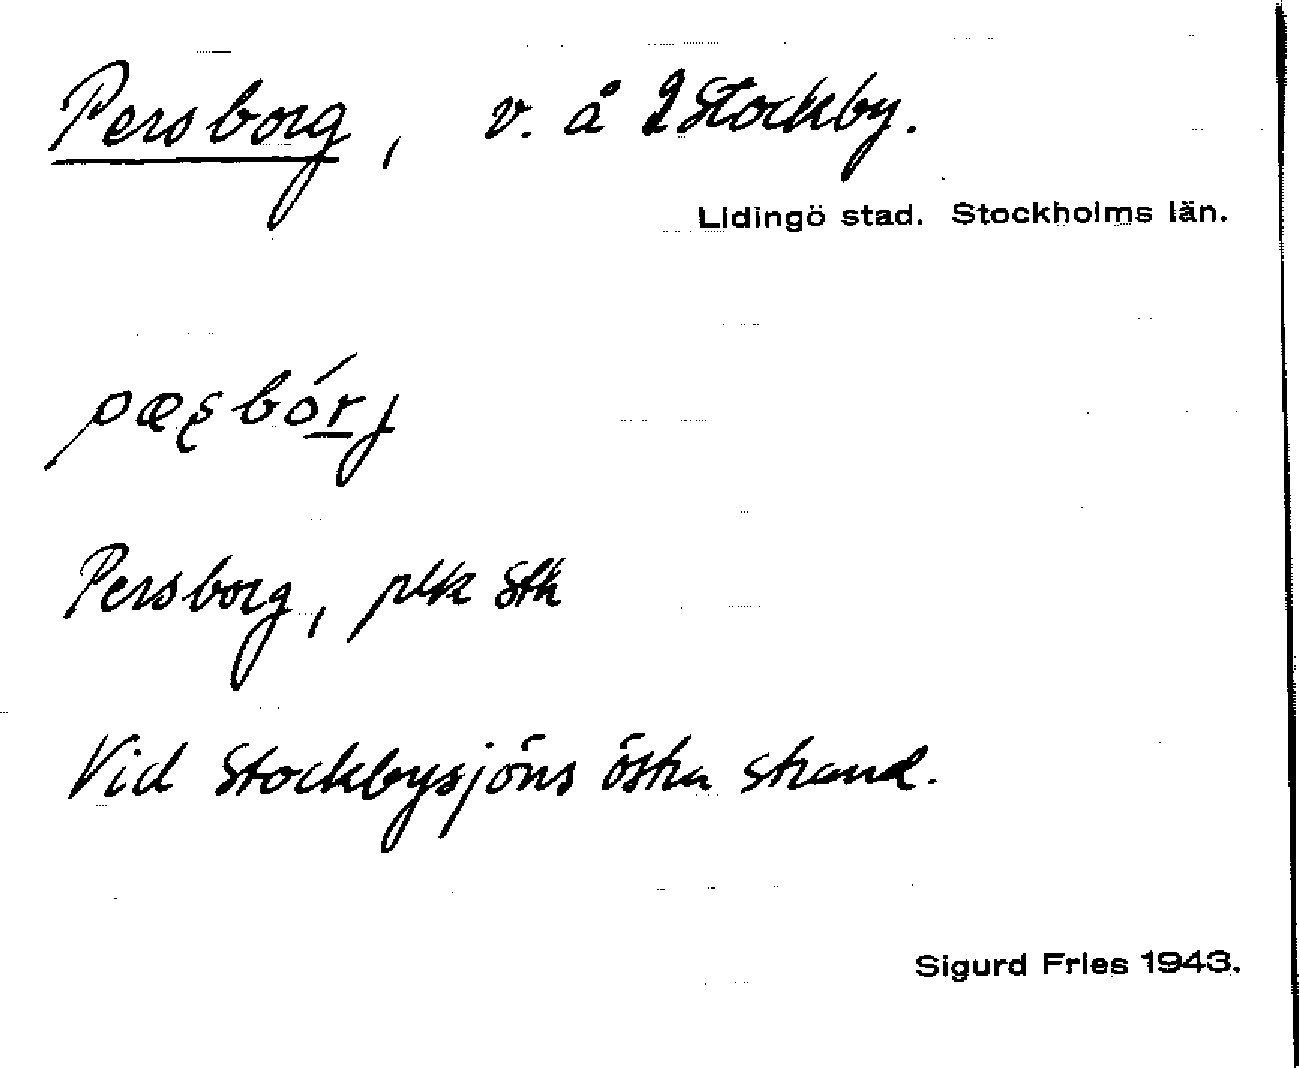 Persborg, v. å 2 Stockby.
Lidingö stad. Stockholms län.
pæʂbórj
Persborg, plk Stk
Vid Stockbysjöns östra strand.
Sigurd Fries 1943.